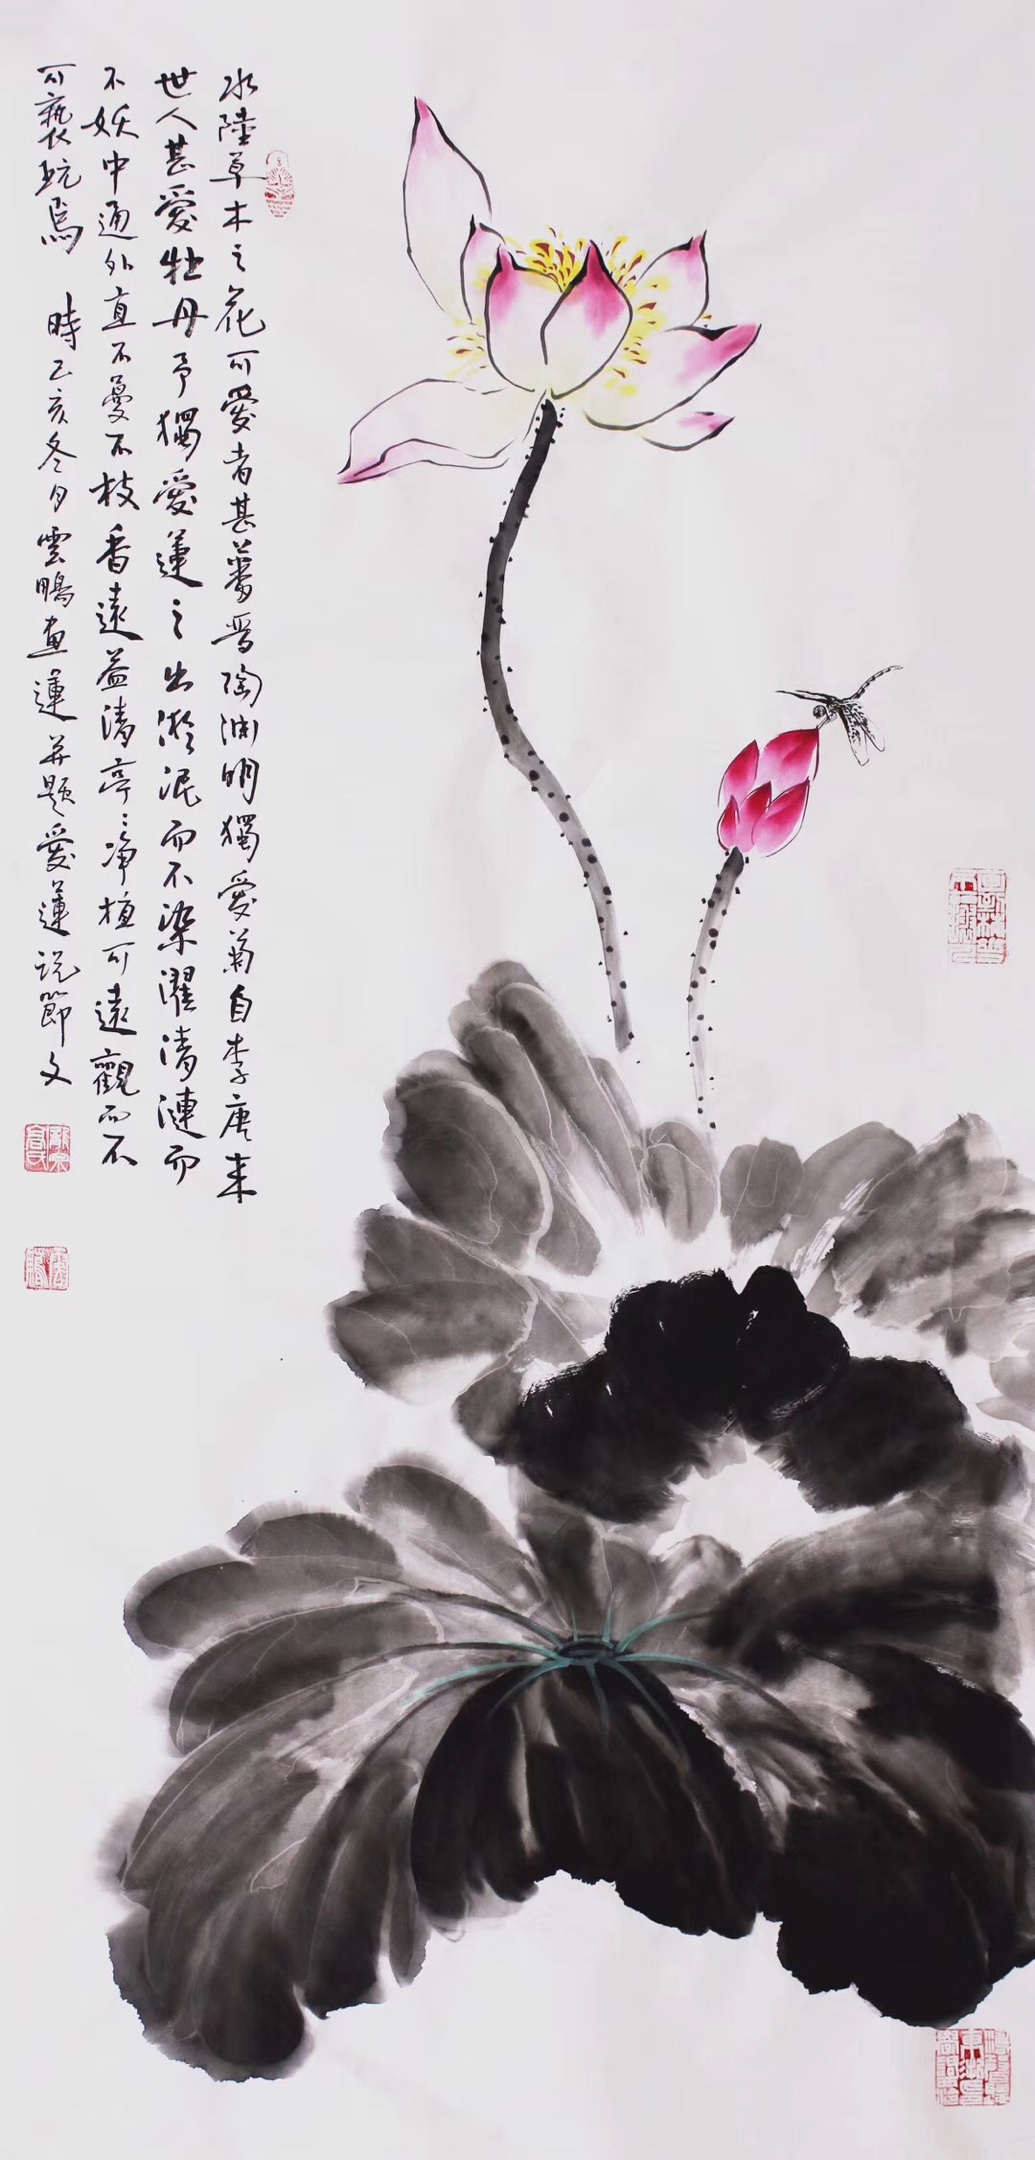 水陸草木之花可愛者甚蕃晋陶渊明獨愛菊自李唐来
世人甚愛牡丹予獨愛蓮之出淤泥而不染濯清漣而
不妖中通外直不蔓不枝香遠益清亭〻净植可遠觀而不
可褻玩焉 時己亥冬月雲鵬畫蓮并题愛蓮说節文